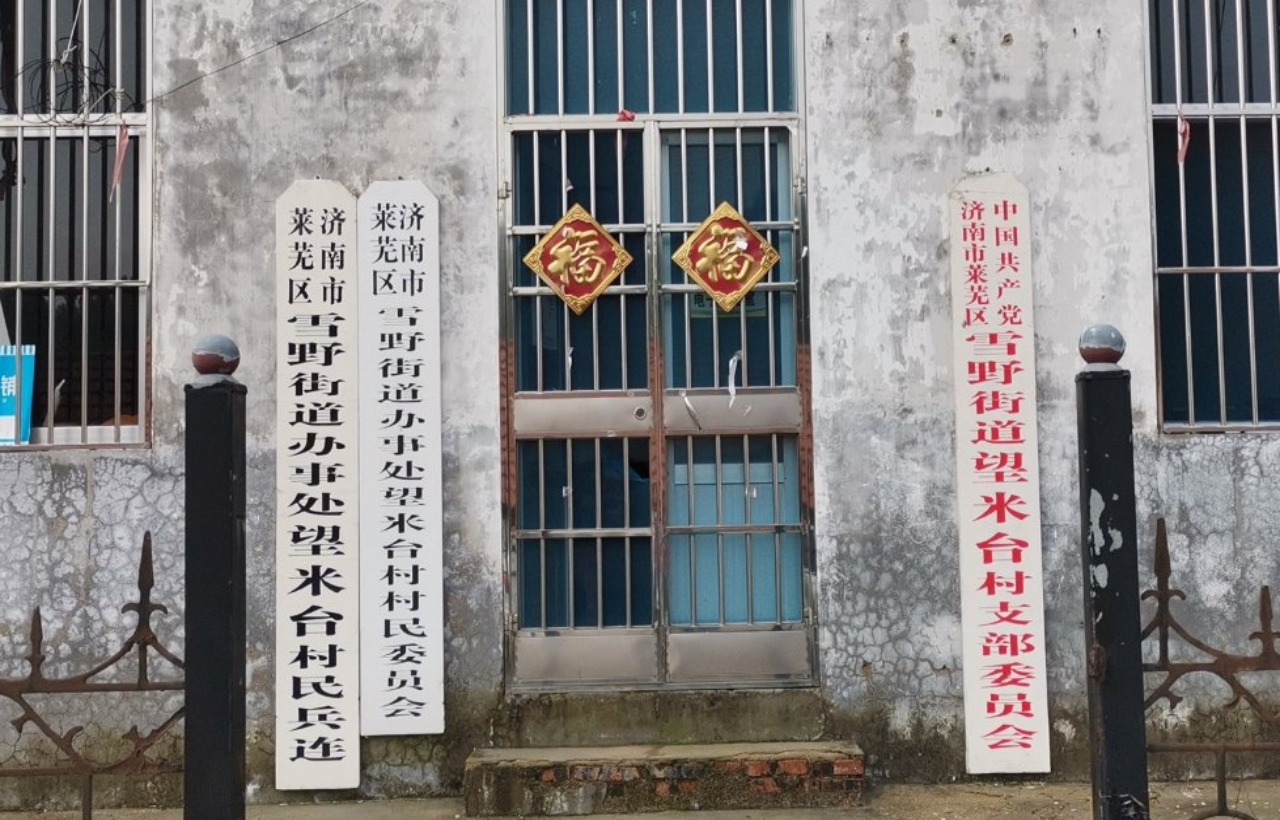 济南市
莱芜区
雪野街道办事处望米台村民兵连
济南市
莱芜区
雪野街道办事处望米台村村民委员会
福
福
中国共产党
济南市莱芜区
雪野街道望米台村支部委员会